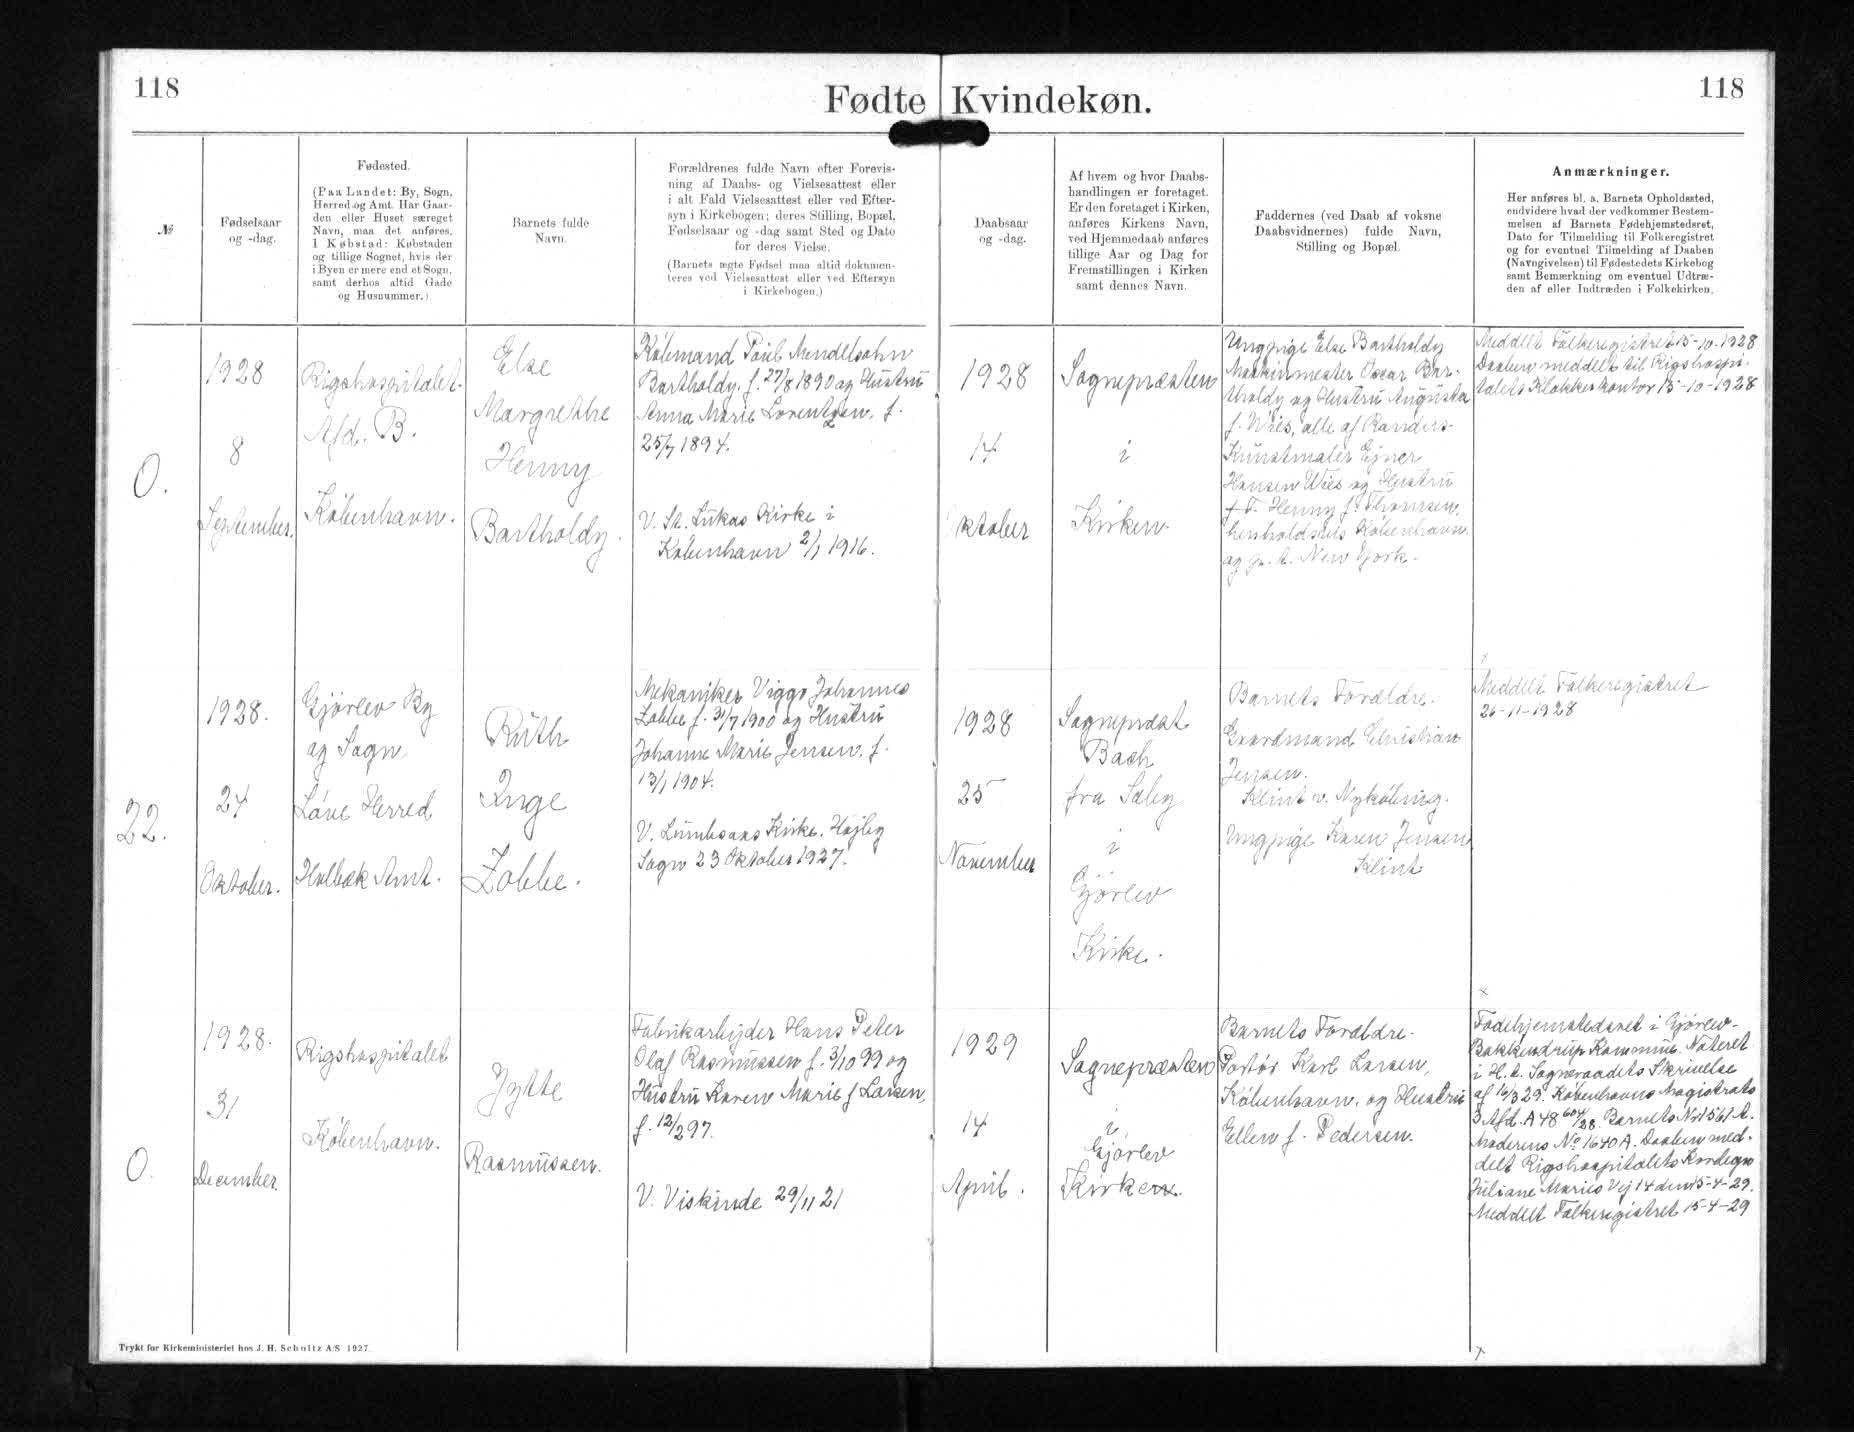 118
118
Fødte Kvindekøn.
№
Fødselsaar
og -dag.
Fødested.
(Paa Landet: By, Sogn,
Herred og Amt. Har Gaar-
den eller Huset særeget
Navn, maa det anføres.
I Købstad: Købstaden
og tillige Sognet, hvis der
i Byen er mere end et Sogn,
samt derhos altid Gade
og Husnummer.)
Barnets fulde
Navn.
Forældrenes fulde Navn efter Forevis-
ning af Daabs- og Vielsesattest eller
i alt Fald Vielsesattest eller ved Efter-
syn i Kirkebogen; deres Stilling, Bopæl,
Fødselsaar og -dag samt Sted og Dato
for deres Vielse.
(Barnets ægte Fødsel maa altid dokumen-
teres ved Vielsesattest eller ved Eftersyn
i Kirkebogen.)
Daabsaar
og -dag.
Af hvem og hvor Daabs-
handlingen er foretaget.
Er den foretaget i Kirken,
anføres Kirkens Navn,
ved Hjemmedaab anføres
tillige Aar og Dag for
Fremstillingen i Kirken
samt dennes Navn.
Faddernes (ved Daab af voksne
Daabsvidnernes) fulde Navn,
Stilling og Bopæl.
Anmærkninger.
Her anføres bl. a. Barnets Opholdssted,
endvidere hvad der vedkommer Bestem-
melsen af Barnets Fødehjemstedsret,
Dato for Tilmelding til Folkeregistret
og for eventuel Tilmelding af Daaben
(Navngivelsen) til Fødestedets Kirkebog
samt Bemærkning om eventuel Udtræ-
den af eller Indtræden i Folkekirken.
0.
1928
8
September.
Rigshospitalet.
Afd. B.
København.
Else
Margrethe
Henny
Bartholdy.
Købmand Poul Mendelsohn
Bartholdy. f. 27/8 1890 og Hustru
Anna Marie Lorentzen. f.
25/7 1894.
V. St. Lukas Kirke i
København 2/1 1916.
1928
14
Oktober
Sognepræsten
i
Kirken.
Ungpige Else Bartholdy
Maskinmester Oscar Bar-
tholdy og Hustru Augusta
f. Wies, alle af Randers-
Kunstmaler Ejner
Hansen Wies og Hustru
Henny f. Thomsen,
henholdsvis København
og p. t. New York.
Meddelt Folkeregistret 15-10-1928
Daaben meddelt til Rigshospi-
talets Klokkerkontor 15-10-1928
22.
1928.
24
Oktober.
Gjørlev By
og Sogn
Løve Herred
Holbæk Amt.
Ruth
Inge
Zobbe.
Mekaniker Viggo Johannes
Zobbe f. 31/7 1900 og Hustru
Johanne Marie Jensen. f.
13/1 1904.
V. Lumbsaas Kirke. Højby
Sogn 23 Oktober 1927.
1928
25
November
Sognepræst
Bach
fra Sæby
i
Gjørlev
Kirke.
Barnets Forældre.
Gaardmand Christian
Jensen.
Klint v. Nykøbing.
Ungpige Karen Jensen
Klint
Meddelt Folkeregistret
26-11-1928
0.
1928.
31
December.
Rigshospitalet
København.
Jytte
Rasmussen.
Fabrikarbejder Hans Peter
Olaf Rasmussen f. 3/10 99 og
Hustru Karen Marie f Larsen,
f. 12/2 97.
V. Viskinde 29/11 21
1929
14
April.
Sognepræsten
i
Gjørlev
Kirke.
Barnets Forældre.
Portør Karl Larsen,
København, og Hustru
Ellen f. Pedersen.
Fødehjemstedsret i Gjørlev-
Bakkendrup Kommune. Noteret
i H. t. Sogneraadets Skrivelse
af 16/3 29. Københavns Magistrats
3 Afd. A 48 604/28. Barnets Nr 1561 A.
Moderens № 1640 A. Daaben med-
delt Rigshospitalets Kordegn
Juliane Maries Vej 14 den 15-4-29.
Meddelt Folkeregistret 15-4-29
Trykt for Kirkeministeriet hos J. H. Schultz A/S 1927.